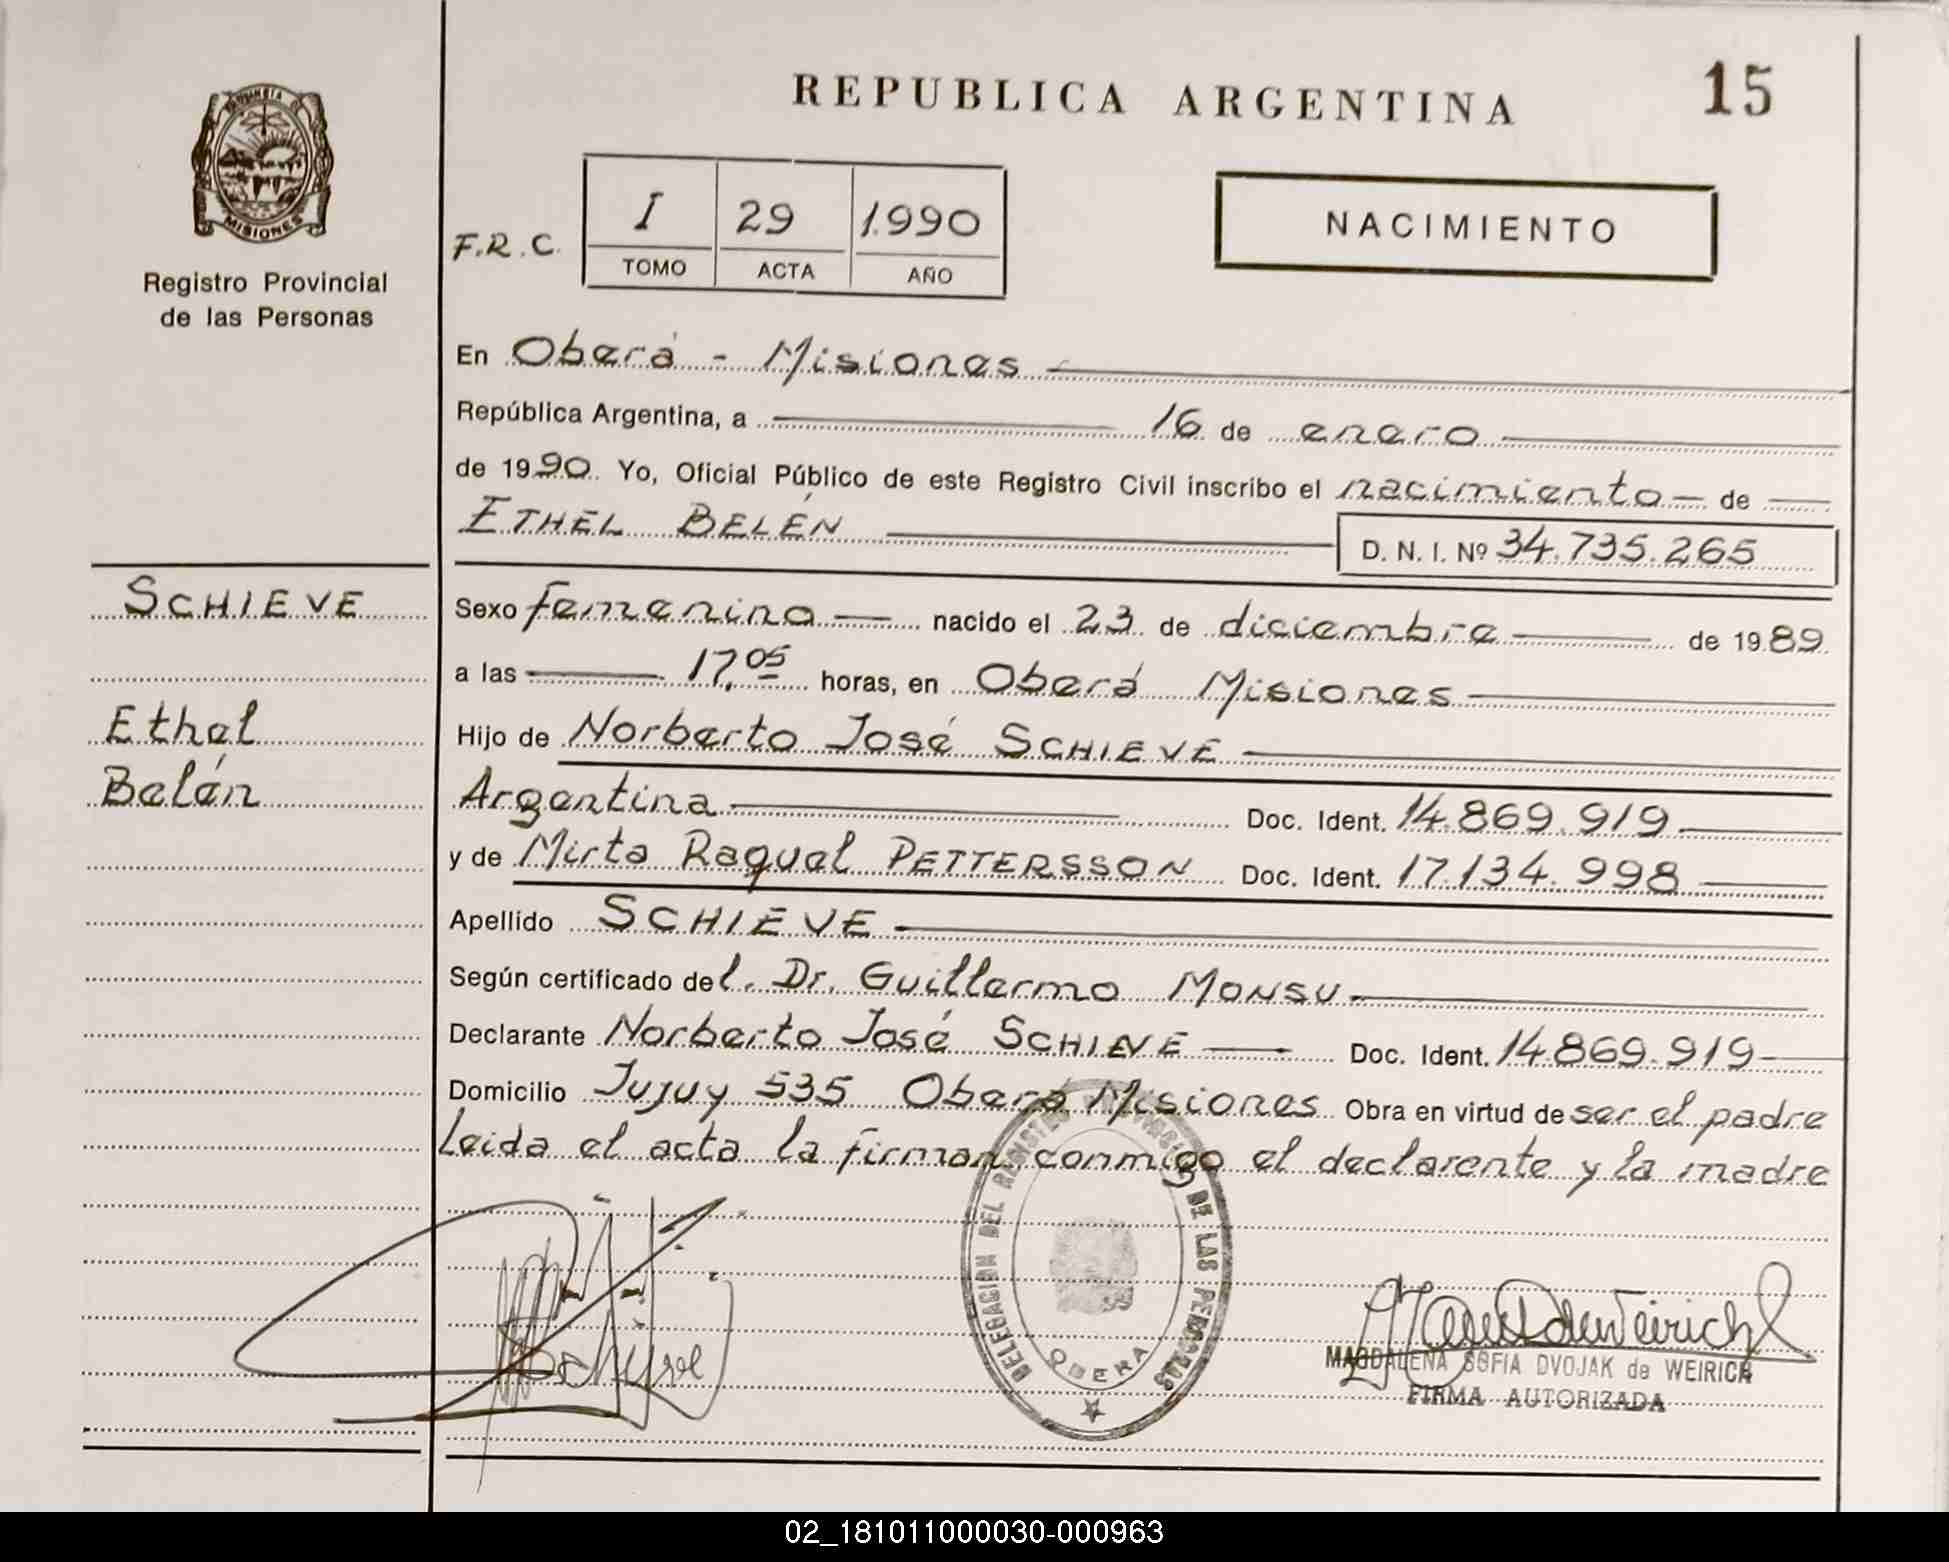 REPUBLICA ARGENTINA
15
PROVINCIA DE
MISIONES
Registro Provincial
de las Personas
F.R.C.
I 29 1.990
TOMO ACTA AÑO
NACIMIENTO
En Oberá - Misiones
República Argentina, a 16 de enero
de 1990. Yo, Oficial Público de este Registro Civil inscribo el nacimiento de
ETHEL BELÉN D. N. I. Nº 34.735.265
SCHIEVE
Ethel
Belén
Sexo femenino nacido el 23 de diciembre de 1989.
a las 17,05 horas, en Oberá Misiones
Hijo de Norberto José SCHIEVE
Argentina Doc. Ident. 14.869.919
y de Mirta Raquel PETTERSSON Doc. Ident. 17.134.998
Apellido SCHIEVE
Según certificado del. Dr. Guillermo MONSU
Declarante Norberto José SCHIEVE Doc. Ident. 14.869.919
Domicilio Jujuy 535 Oberá Misiones Obra en virtud de ser el padre
Leida el acta la firman conmigo el declarente y la madre
DELEGACION DEL REGISTRO PROVINCIAL DE LAS PERSONAS
OBERA
MAGDALENA SOFIA DVOJAK de WEIRICH
FIRMA AUTORIZADA
02_181011000030-000963